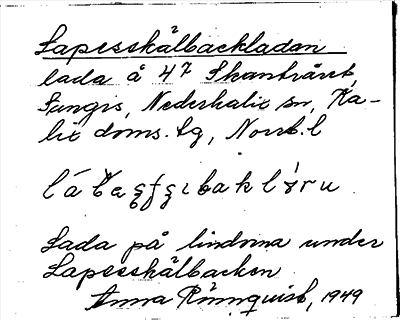 Lapesskålbackladan
lada å 47 Skamträsk,
Sangis, Nederkalix sn, Ka-
lix doms. tg, Norrb. l
Lada på lindorna under
Lapesskälbacken
Anna Rönnquist, 1949